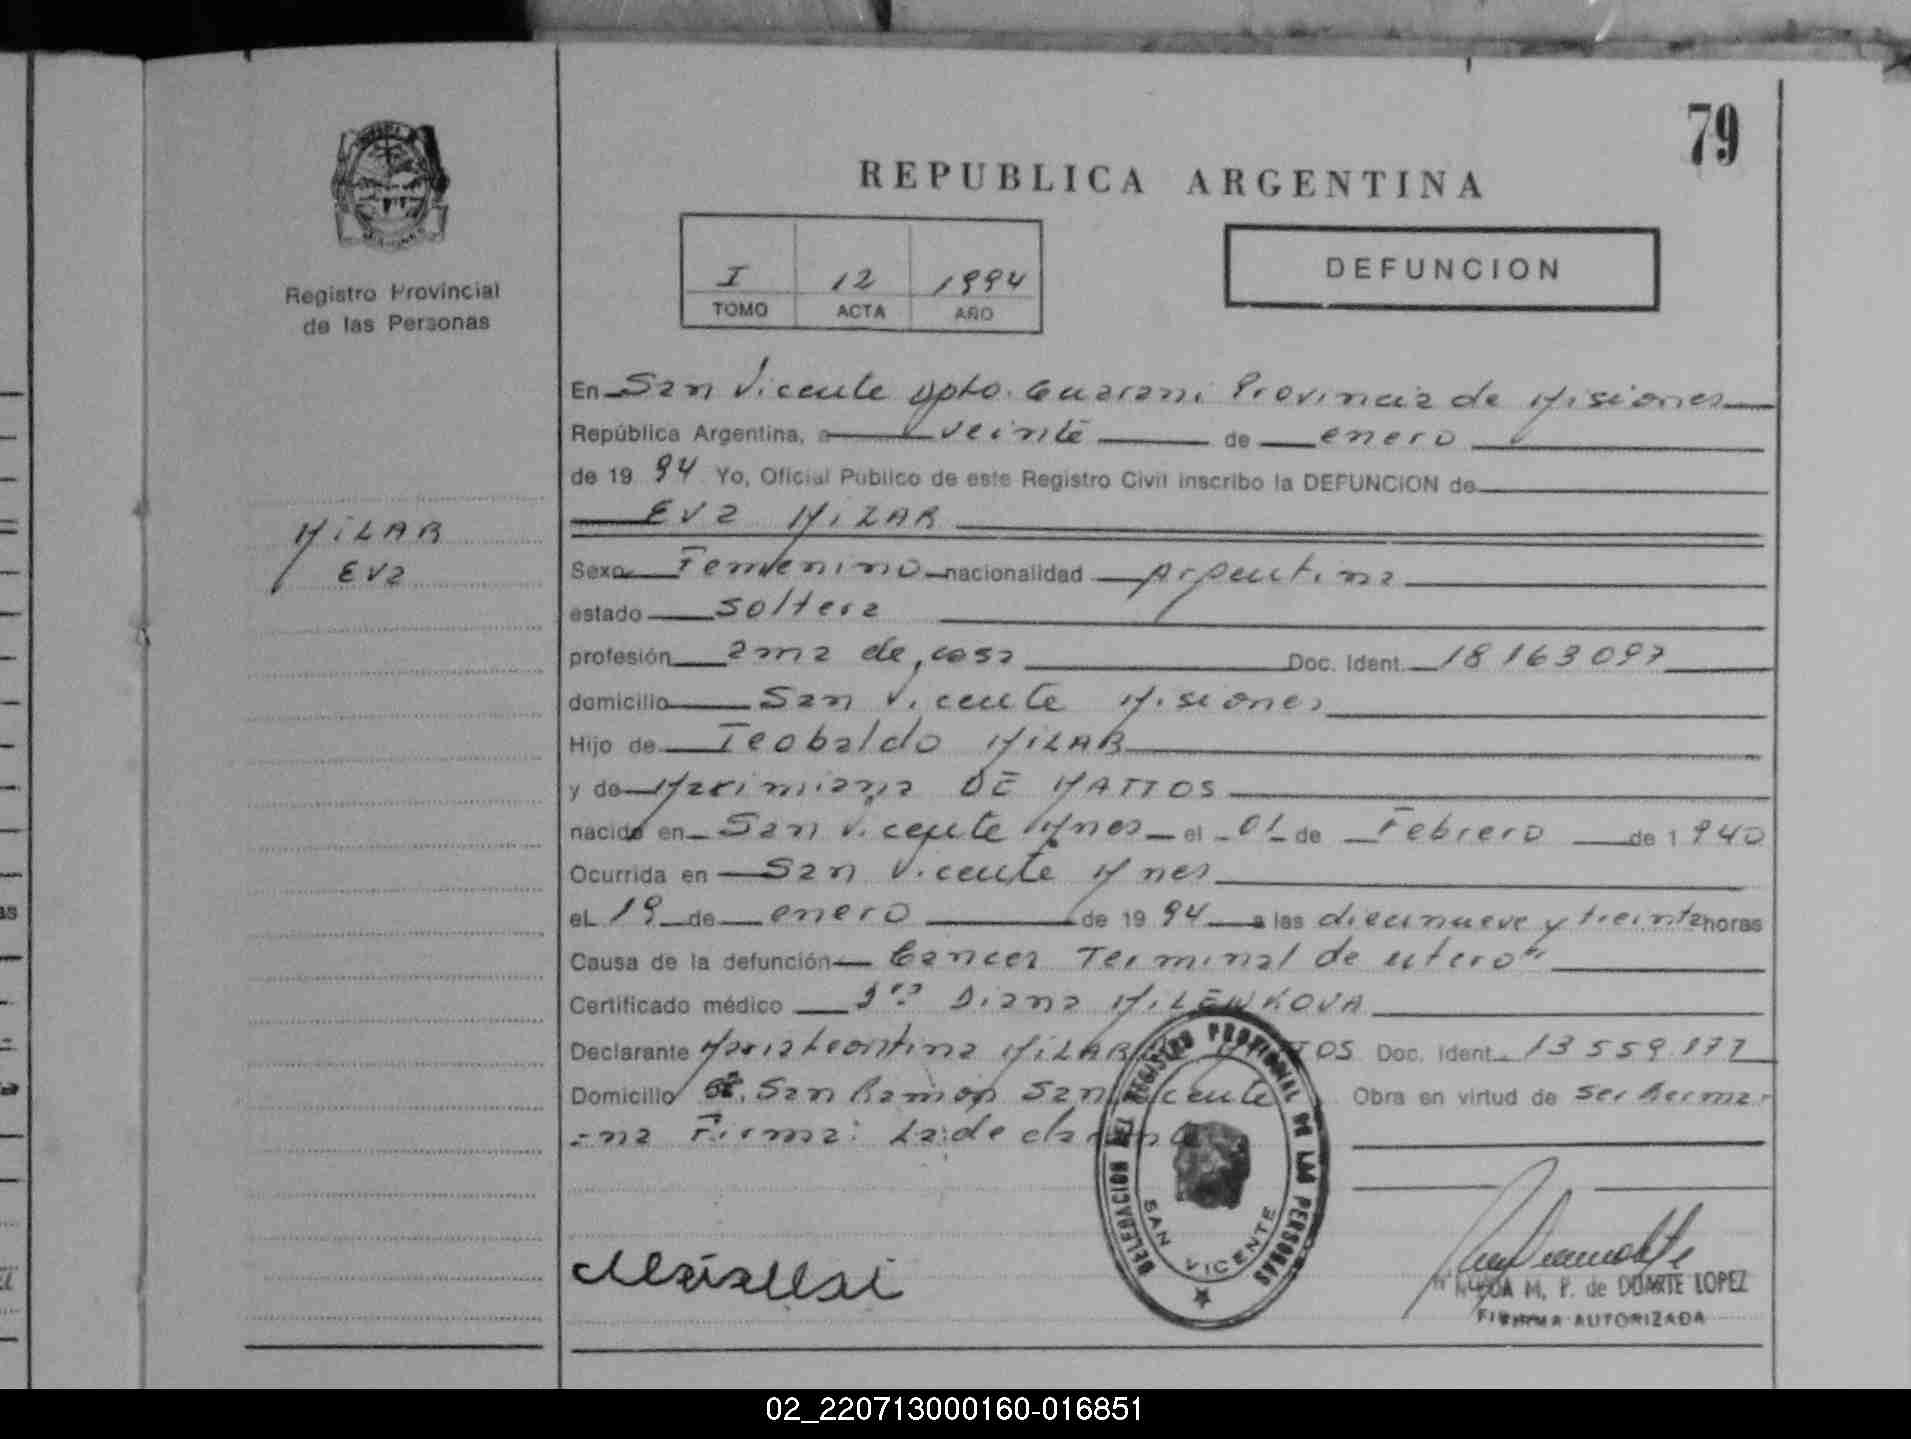 79
REPUBLICA ARGENTINA
Registro Provincial
de las Personas
I 12 1994
TOMO ACTA AÑO
DEFUNCION
MILAR
Eva
En San Vicente Dpto. Guarani Provincia de Misiones
República Argentina, a veinte de enero
de 1994 Yo, Oficial Público de este Registro Civil inscribo la DEFUNCION de
Eva MILAR
Sexo Femenino nacionalidad Argentina
estado soltera
profesión ama de casa Doc. Ident. 18163097
domicilio San Vicente Misiones
Hijo de Teobaldo MILAR
y de Maximiana DE MATTOS
nacido en San Vicente Mnes el 01 de Febrero de 1940
Ocurrida en San Vicente Mnes
el 19 de enero de 1994 a las diecinueve y treinta horas
Causa de la defunción Cancer Terminal de utero"
Certificado médico Dra Diana MILENKOVA
Declarante Maria Leontina MILAR DE MATTOS Doc. Ident. 13 559 177
Domicilio San Ramon San Vicente Obra en virtud de ser herma-
-na Firma: La declarante
DELEGACION DEL REGISTRO PROVINCIAL DE LAS PERSONAS
SAN VICENTE
M. P. de DUARTE LOPEZ
FIRMA AUTORIZADA
02_220713000160-016851